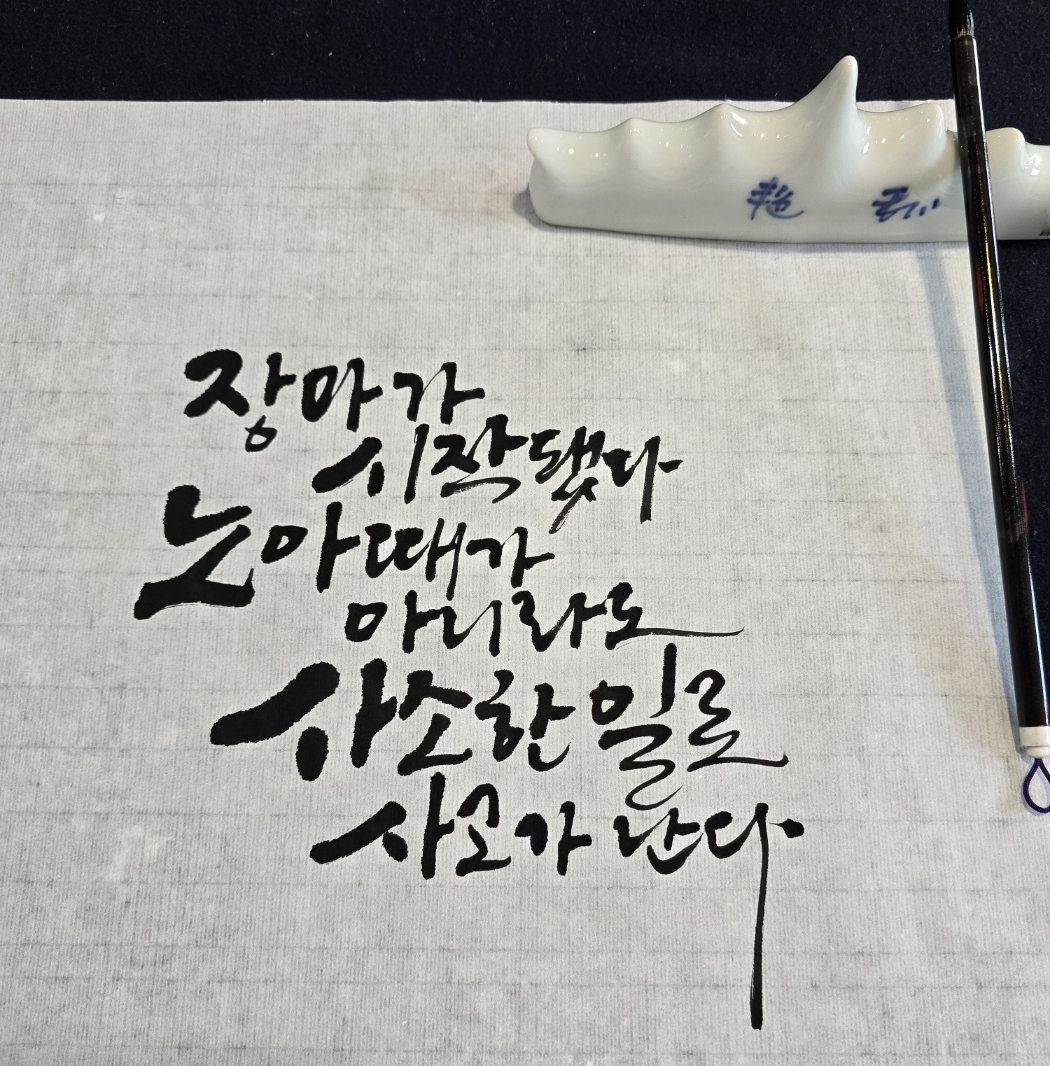 장마가
시작됐다
노아때가
아니라도
사소한 일로
사고가 난다